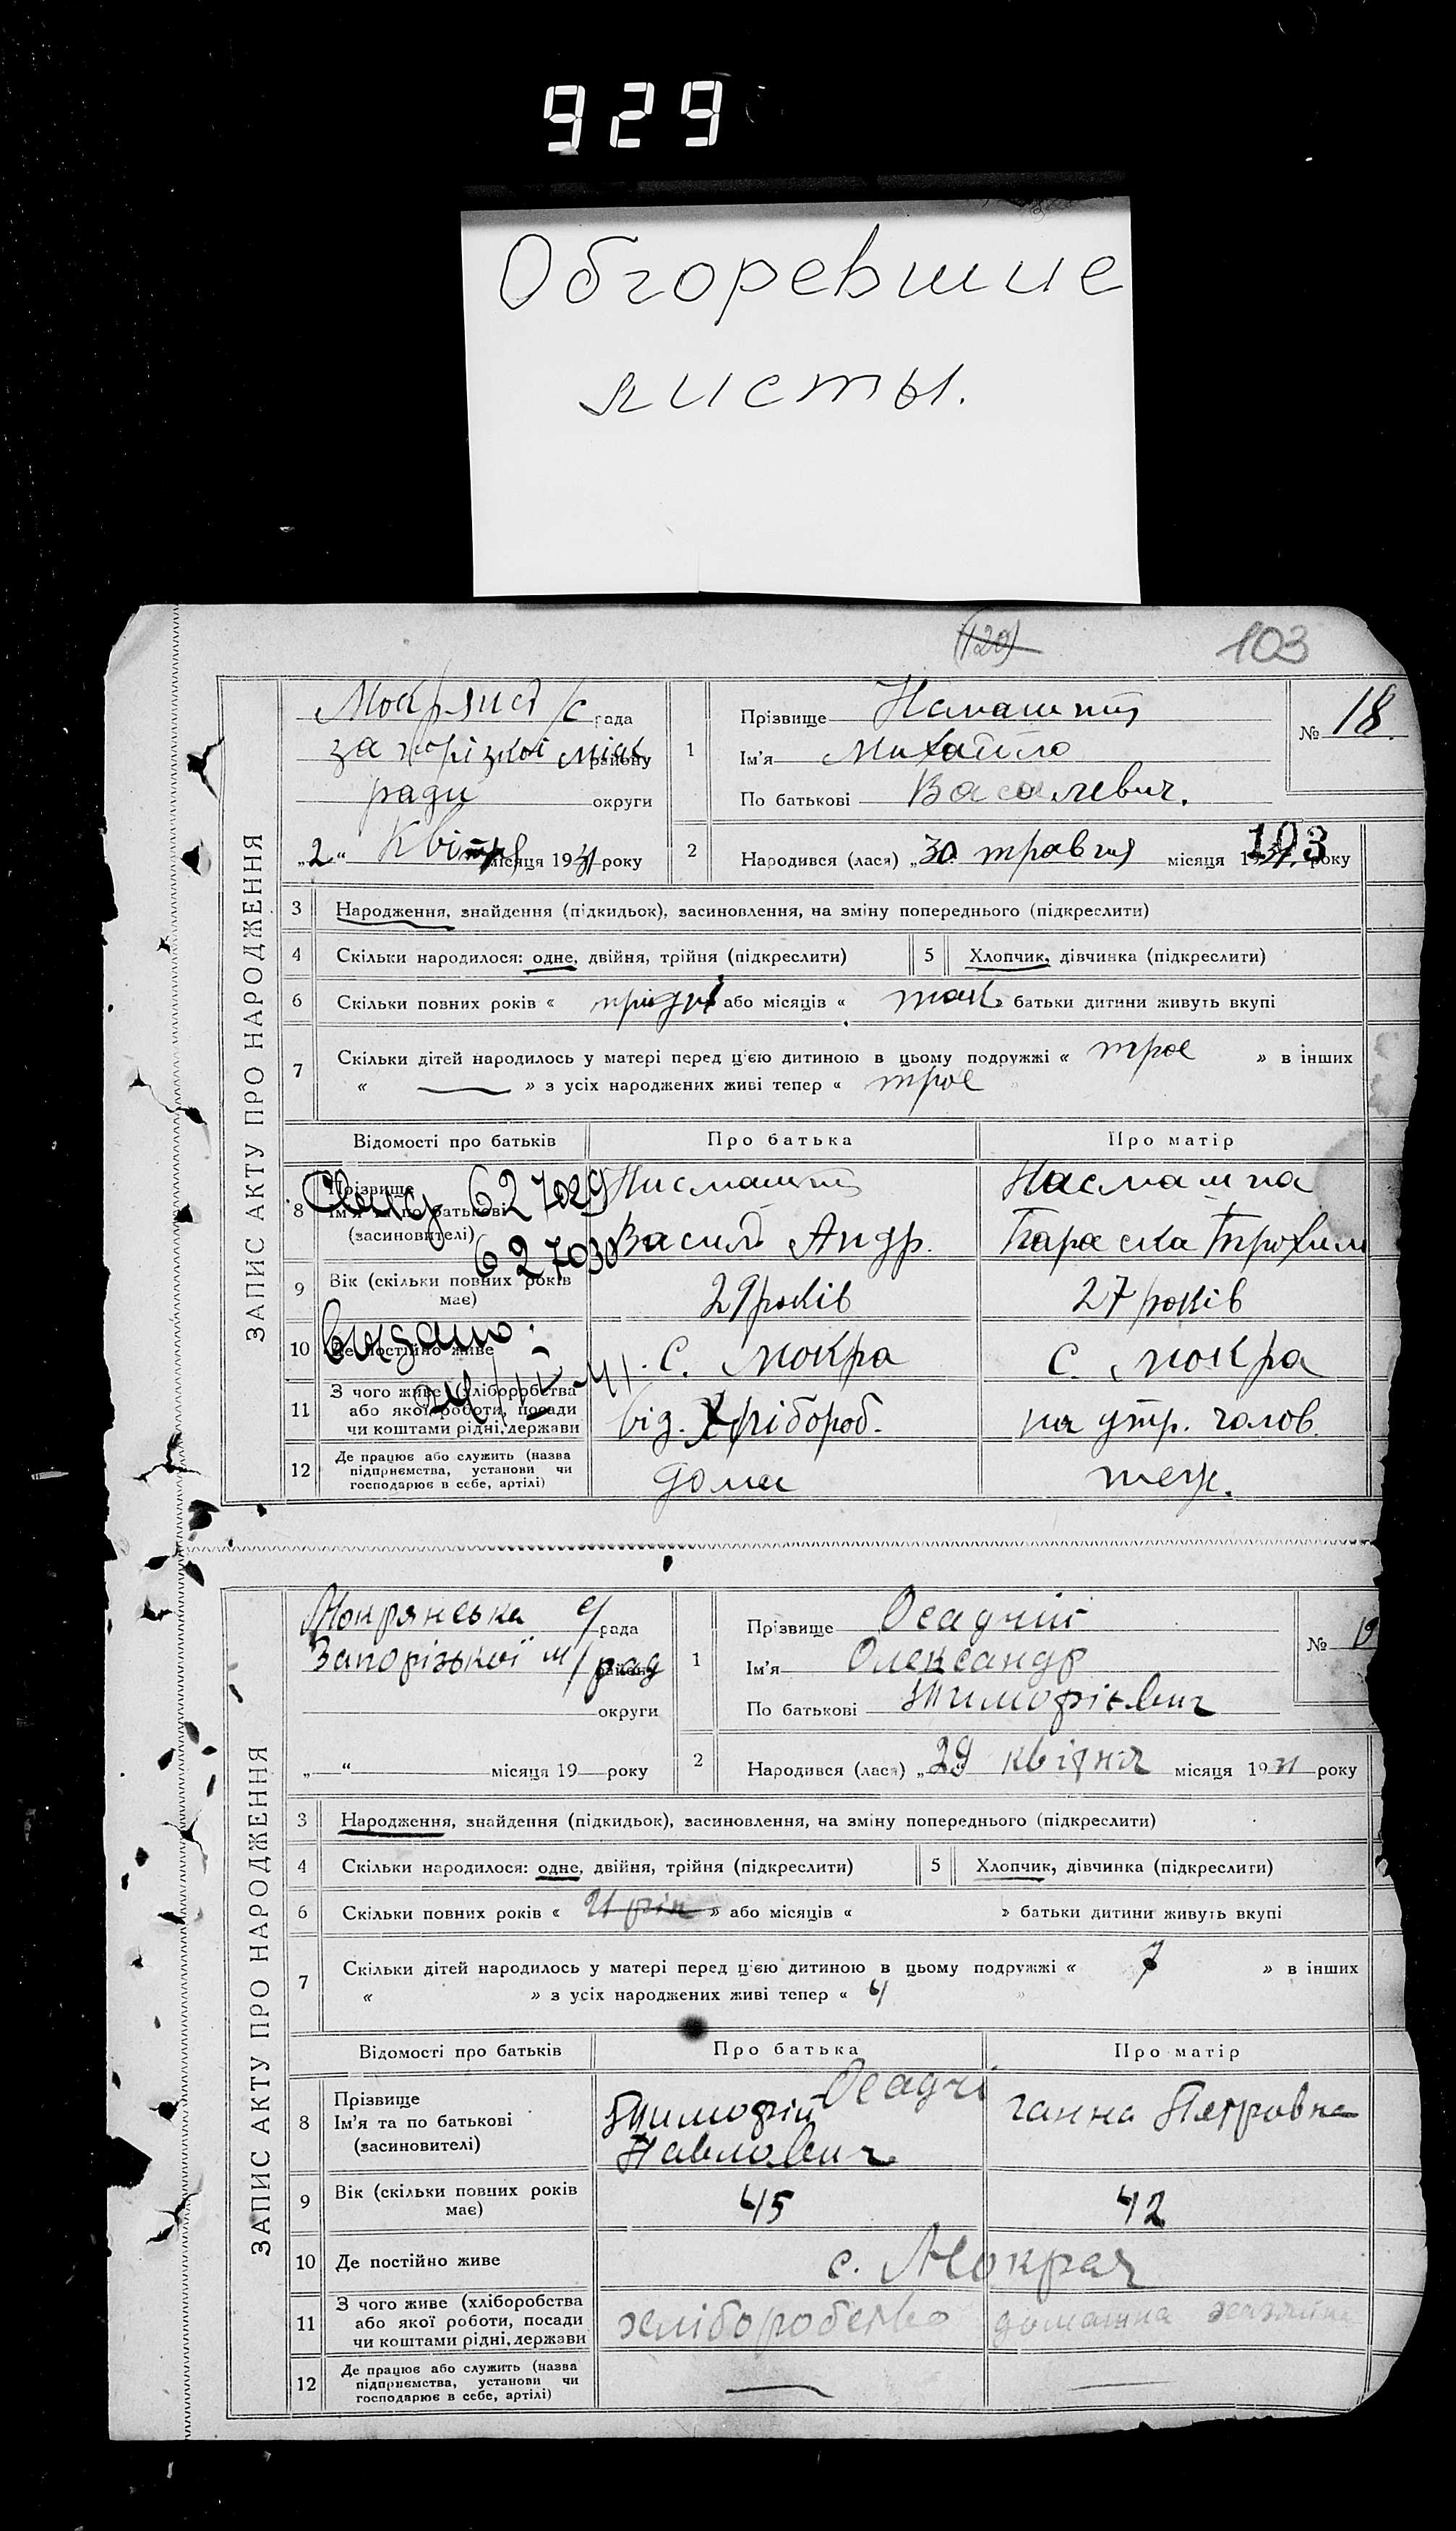 929
Обгоревшие
листы.
(120)
103
ЗАПИС АКТУ ПРО НАРОДЖЕННЯ
с/рада
району
ради округи
„2“ місяця 1931 року
1
Прізвище
Ім'я Михайло
По батькові
№ 18.
103
2
Народився (лася) „30 травня місяця 1931 року
3 Народження, знайдення (підкидьок), засиновлення, на зміну попереднього (підкреслити)
4 Скільки народилося: одне, двійня, трійня (підкреслити)
5 Хлопчик, дівчинка (підкреслити)
6 Скільки повних років « або місяців « » батьки дитини живуть вкупі
7 Скільки дітей народилось у матері перед ц'єю дитиною в цьому подружжі « троє » в інших
« — » з усіх народжених живі тепер « троє »
Відомості про батьків
Про батька
Про матір
8 Прізвище
Ім'я та по батькові
(засновителі)
627029
627030
Василь Андр.
Параска Трохим
9 Вік (скільки повних років має)
29 років
27 років
10 Де постійно живе
видано
с. Мокра
с. Мокра
11 З чого живе (хліборобства
або якої роботи, посади
чи коштами рідні, держави
від. Хлібороб.
на утр. чолов.
12 Де працює або служить (назва
підприємства, установи чи
господарює в себе, артілі)
дома
теж.
ЗАПИС АКТУ ПРО НАРОДЖЕННЯ
Мокрянська с/рада
Запорізької м/рад району
округи
„—“ місяця 19— року
1
Прізвище Осадчий
Ім'я Олександр
По батькові Тимофієвич
№ 19
2
Народився (лася) „29 квітня місяця 1931 року
3 Народження, знайдення (підкидьок), засиновлення, на зміну попереднього (підкреслити)
4 Скільки народилося: одне, двійня, трійня (підкреслити)
5 Хлопчик, дівчинка (підкреслити)
6 Скільки повних років « 21 рік » або місяців « » батьки дитини живуть вкупі
7 Скільки дітей народилось у матері перед ц'єю дитиною в цьому подружжі « 7 » в інших
« » з усіх народжених живі тепер « 4 »
Відомості про батьків
Про батька
Про матір
8 Прізвище
Ім'я та по батькові
(засиновителі)
Осадчі
Тимофій
Павлович
Ганна Петровна
9 Вік (скільки повних років має)
45
42
10 Де постійно живе
с. Мокрая
11 З чого живе (хліборобства
або якої роботи, посади
чи коштами рідні, держави
хліборобство
домашна хазяйка
12 Де працює або служить (назва
підприємства, установи чи
господарює в себе, артілі)
—
—